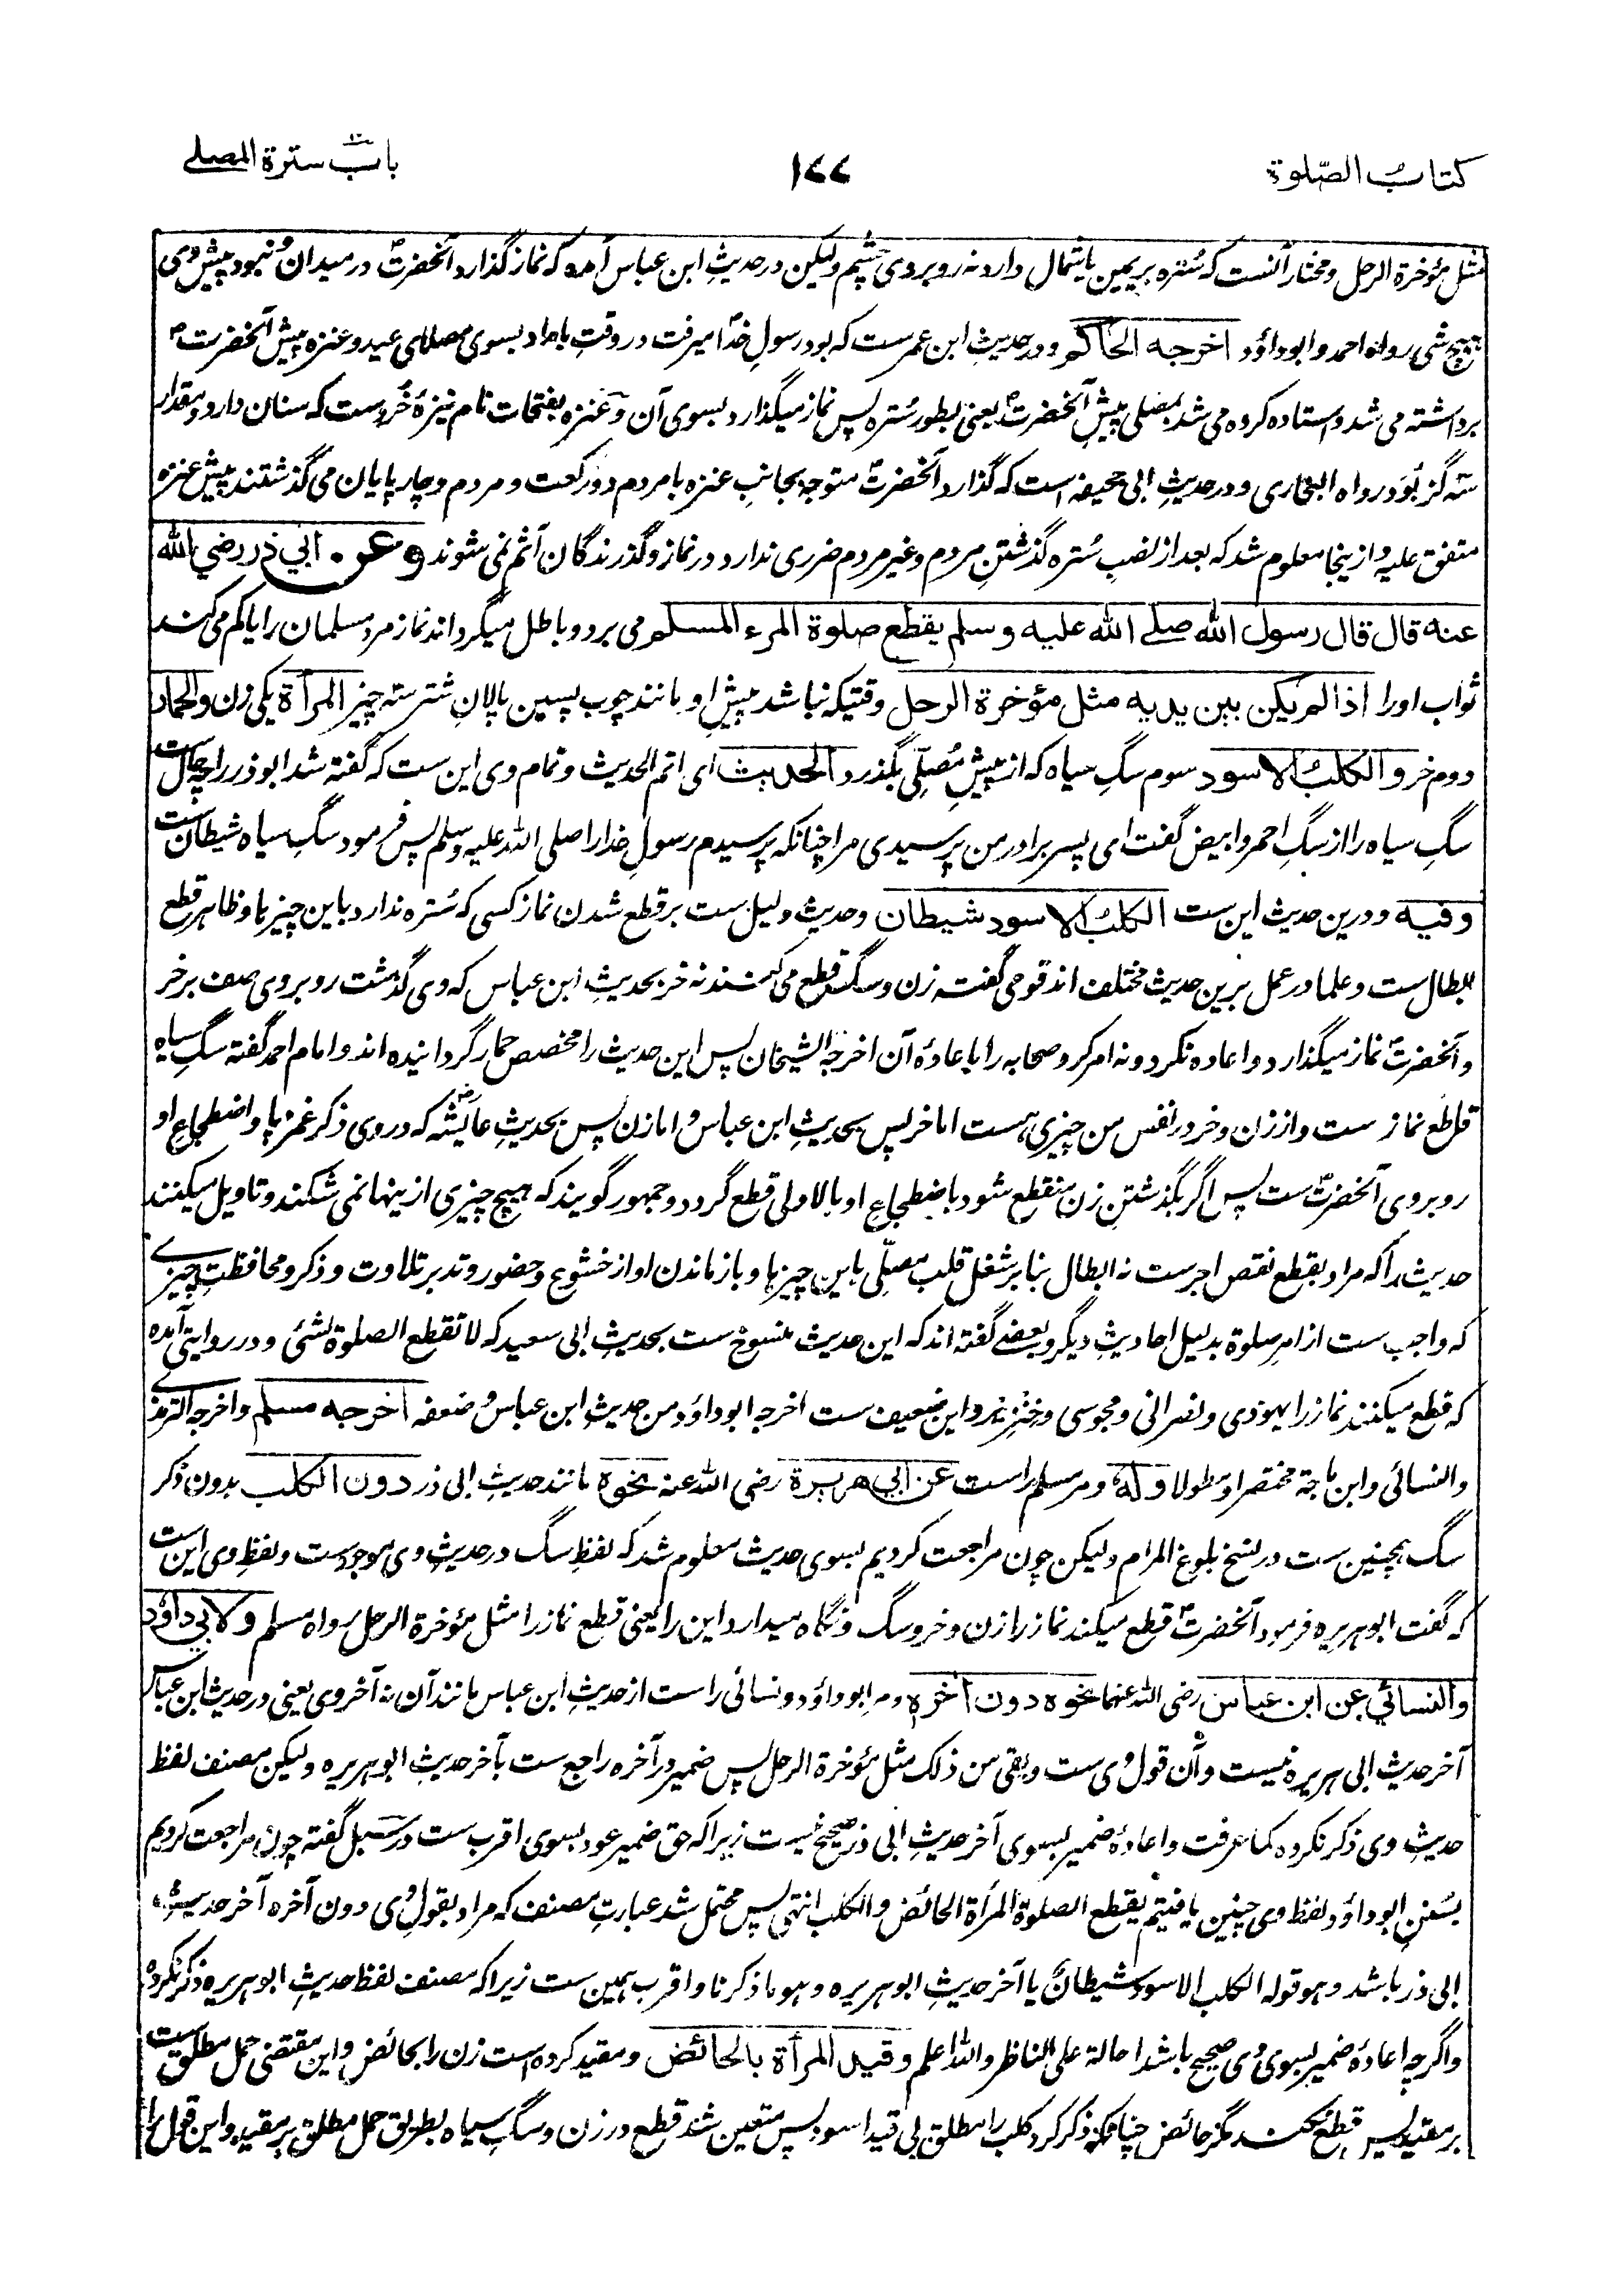 کتاب الصّلوة
۱۷۷
باب سترة المصلے
مثل مؤخرة الرحل ومختار آنست که سُتره بریمین یا شمال دارد نه روبروی چشم ولیکن در حدیثِ ابن عباس آمده که نماز گذارد آنحضرتؐ در میدان و نبود پیش وی
هیچ شی رواه احمد وابوداؤد اخرجه الحاکم و در حدیثِ ابن عمر ست که بود رسولِ خداؐ میرفت در وقتِ بامداد بسوی مصلای عید و عنزه پیش آنحضرت ؐ
برداشته می شد و استاده کرده می شد بمصلی پیشِ آنحضرتؐ یعنی بطور سُتره پس نماز میگذارد بسوی آن و عَنَزه بفتحات نام نیزۀ خُرد ست که سنان دارد و مقدار
سه گز بُوَد رواه البخاری و در حدیثِ ابی جحیفه است که گذارد آنحضرتؐ متوجه بجانبِ عنزه با مردم دو رکعت و مردم و چارپایان می گذشتند پیش عنزه
متفق علیه و ازینجا معلوم شد که بعد از نصبِ سُتره گذشتنِ مردم و غیر مردم ضرری ندارد در نماز و گذرندگان آثم نمی شوند وعن ابي ذر رضي الله
عنه قال قال رسول الله صلے الله علیه وسلم یقطع صلوة المرء المسلم می برد و باطل میگرداند نماز مرد مسلمان را یا کم می کند
ثواب او را اذا لم یکن بین یدیه مثل مؤخرة الرحل وقتیکه نباشد پیشِ او مانند چوب پسین پالانِ شتر سته چیز المرأة یکی زن والحمار
دوم خر والکلبُ الاسود سوم سگِ سیاه که از پیشِ مُصلّی بگذرد الحدیث ای اتم الحدیث و تمام وی این ست که گفته شد ابوذر را چه حال ست
سگِ سیاه را از سگِ احمر و ابیض گفت ای پسر برادر من پرسیدی مرا چنانکه پرسیدم رسولِ خدا را صلی الله علیه وسلم پس فرمود سگِ سیاه شیطان ست
وفیه و درین حدیث این ست الکلبُ الاسود شیطان و حدیث دلیل ست بر قطع شدن نماز کسی که سُتره ندارد باین چیزها و ظاهر قطع
ابطال ست و علما در عمل برین حدیث مختلف اند قومی گفته زن و سگ قطع می کنند نه خر بحدیثِ ابن عباس که وی گذشت روبروی صف بر خر
و آنحضرتؐ نماز میگذارد و اعاده نکرد و نه امر کرد صحابه را با عادۀ آن اخرجه الشیخان پس این حدیث را مخصص حمار گردانیده اند و امام احمد گفته سگِ سیاه
قاطع نماز ست و از زن و خر در نفسِ من چیزی هست اما خر پس بحدیثِ ابن عباس و اما زن پس بحدیثِ عایشه رض که در وی ذکر غمز پا و اضطجاعِ او
روبروی آنحضرتؐ ست پس اگر بگذشتنِ زن منقطع شود باضطجاعِ او بالاولی قطع گردد و جمهور گویند که هیچ چیزی ازینها نمی شکند و تاویل میکنند
حدیث را که مراد بقطع نقص اجرست نه ابطال بنا بر شغل قلبِ مصلّی باین چیزها و باز ماندن او از خشوع و حضور و تدبر تلاوت و ذکر و محافظتِ چیزے
که واجب ست از امرِ صلوة بدلیل احادیثِ دیگر و بعضے گفته اند که این حدیث منسوخ ست بحدیثِ ابی سعید که لا تقطع الصلوة لشئی و در روایتی آمده
که قطع میکنند نماز را یهودی و نصرانی و مجوسی و خنزیر و این ضعیف ست اخرجه ابوداؤد من حدیثِ ابن عباس و ضعفه اخرجه مسلم و اخرجه الترمذے
والنسائی وابن ماجة مختصرا و مطولا وله و مر مسلم راست عن ابي هریرة رضی الله عنه نحوه مانند حدیثِ ابی ذر دون الکلب بدون ذکر
سگ همچنین ست در نسخ بلوغ المرام و لیکن چون مراجعت کردیم بسوی حدیث معلوم شد که لفظِ سگ در حدیثِ وی موجودست و لفظِ وی این ست
که گفت ابوهریره فرمود آنحضرتؐ قطع میکند نماز را زن و خر و سگ و نگاه میدارد این را یعنی قطع نماز را مثل مؤخرة الرحل رواه مسلم ولابي داؤد
والنسائي عن ابن عباس رضی الله عنهما نحوه دون آخره و مر ابوداؤد و نسائی راست از حدیثِ ابن عباس مانند آن نه آخر وی یعنی در حدیث ابن عباس
آخر حدیث ابی هریره نیست و آن قول وی ست ویقی من ذلک مثل مؤخرة الرحل پس ضمیر در آخره راجع ست بآخر حدیثِ ابوهریره و لیکن مصنف لفظ
حدیثِ وی ذکر نکرده کما عرفت و اعادۀ ضمیر بسوی آخر حدیثِ ابی ذر صحیح نیست زیرا که حق ضمیر عود بسوی اقرب ست در سبل گفته چون مراجعت کردیم
بسُننِ ابوداؤد لفظ وی چنین یافتیم یقطع الصلوة المرأة الحائض والکلب انتهی پس محتمل شد عبارتِ مصنف که مراد بقولِ وی دون آخره آخر حدیثِ
ابی ذر باشد و هو قوله الکلب الاسود شیطانٌ یا آخر حدیثِ ابوهریره و هو ما ذکرنا و اقرب همین ست زیرا که مصنف لفظ حدیثِ ابوهریره ذکر نکرده
و اگرچه اعادۀ ضمیر بسوی وی صحیح باشد احالة علی الناظر والله اعلم وقید المرأة بالحائض و مقید کرده است زن را بحائض و این مقتضی حمل مطلق ست
بر مقید پس قطع نمیکند مگر حائض چنانکه ذکر کرد کلب را مطلق بی قید اسود پس متعین شد قطع در زن و سگِ سیاه بطریق حمل مطلق بر مقید و این قول را